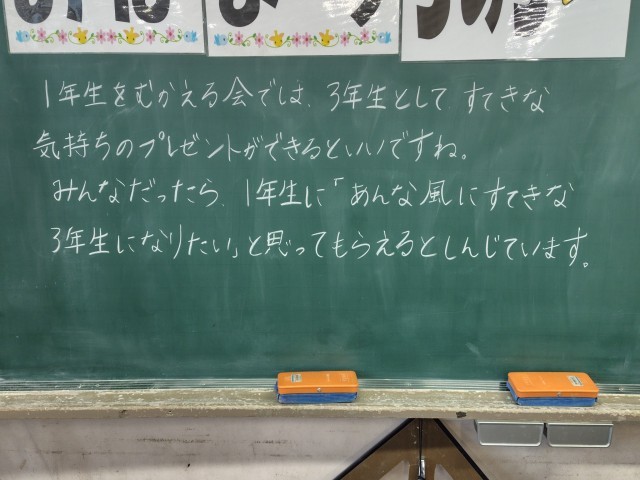 1年生をむかえる会では、3年生として すてきな
気持ちのプレゼントができるといいですね。
みんなだったら、1年生に「あんな風にすてきな
3年生になりたい」と思ってもらえるとしんじています。